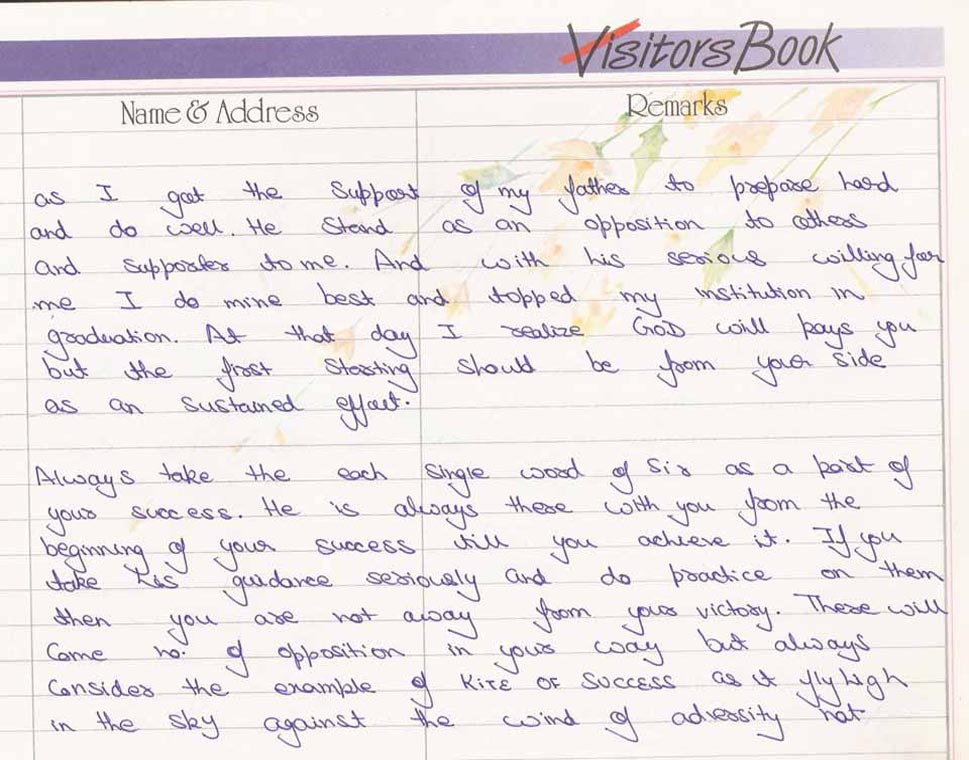 Visitors Book
Name & Address Remarks
as I got the Support of my father to prepare hard
and do well. He Stand as an opposition to others
and supporter to me. And with his serious willing for
me I do mine best and topped my institution in
graduation. At that day I realize GOD will pays you
but the first Starting should be from your side
as an sustained effort.
Always take the each single word of Sir as a part of
your success. He is always there with you from the
beginning of your success till you achieve it. If you
take his guidance seriously and do practice on them
then you are not away from your victory. There will
Come no. of opposition in your way but always
Consider the example of KITE OF SUCCESS as it fly high
in the sky against the wind of adversity not